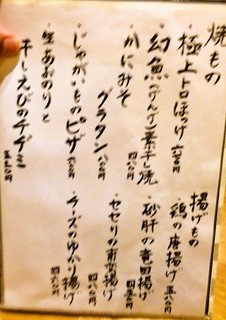 焼もの
・極上トロほっけ 六三〇円
・幻魚(げんげ)一素干し焼
・かにみそ 四八〇円
グラタン 八〇〇円
・じゃがいものピザ 六八〇円
・生あおのりと
干しえびのチヂミ
五七〇円
揚げもの
・鶏の唐揚げ 五八〇円
・砂肝の竜田揚げ 四五〇円
・セセリの南蛮揚げ 四八〇円
・チーズのゆかり揚げ 四八〇円